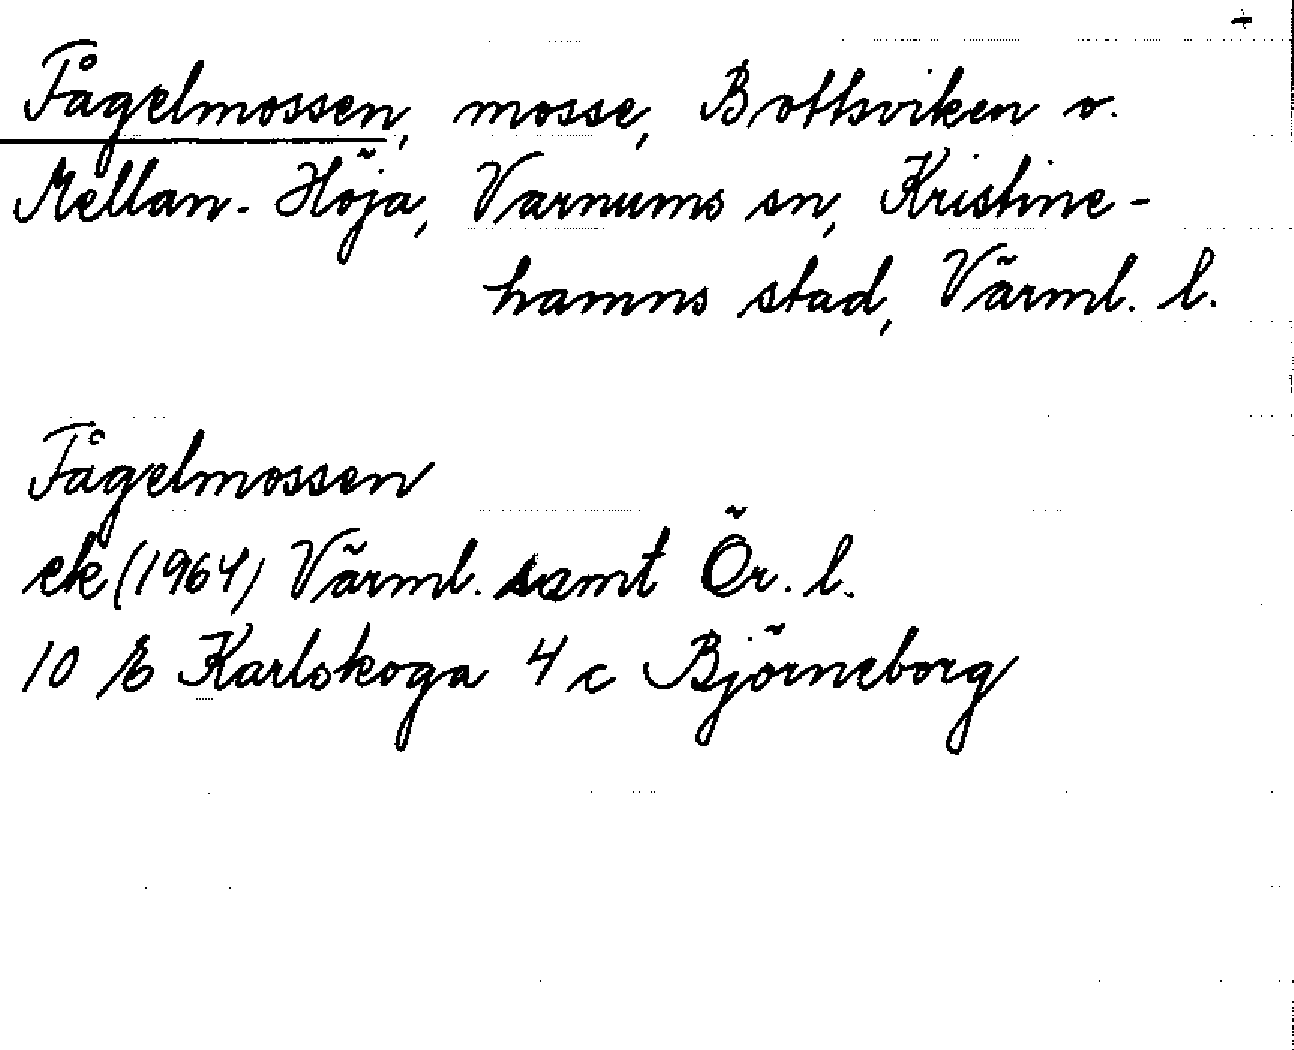 +
Fågelmossen, mosse, Bottsviken o.
Mellan-Höja, Varnums sn, Kristine-
hamns stad, Värml. l.
Fågelmossen
ek (1964) Värml. samt Ör. l.
10 E Karlskoga 4 c Björneborg